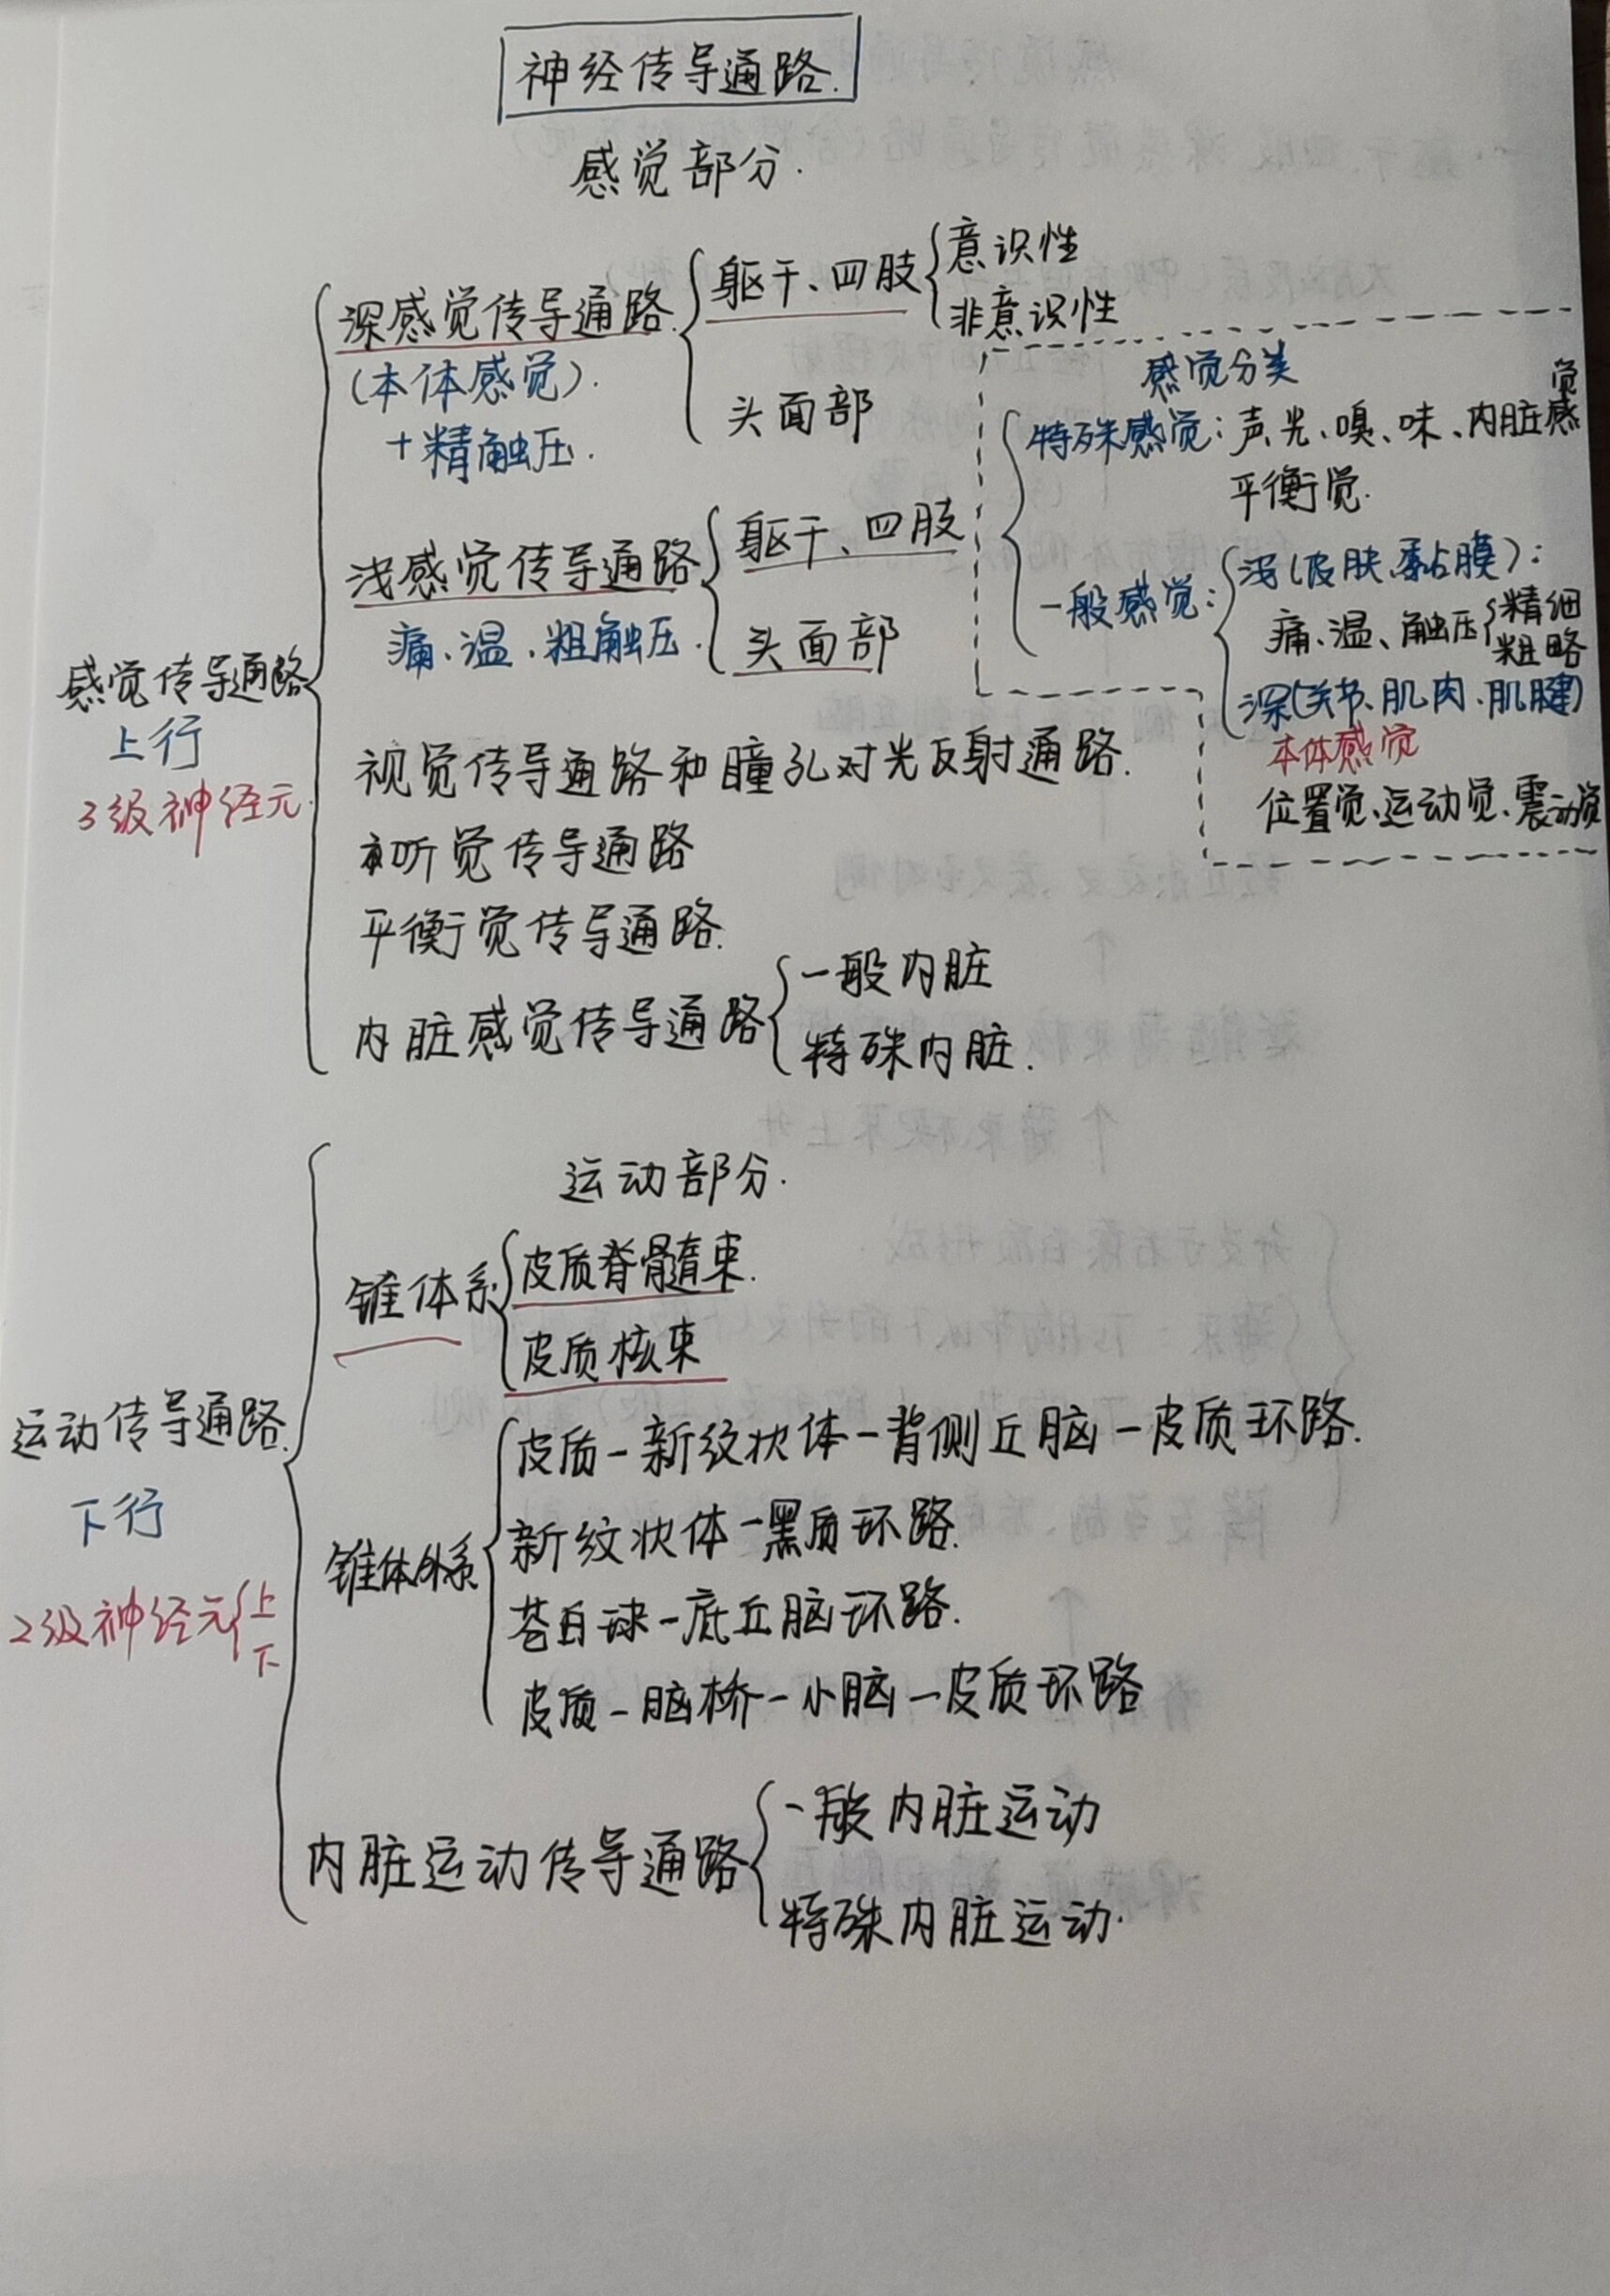 神经传导通路.
感觉部分.
感觉传导通路
上行
3级神经元.
深感觉传导通路.
(本体感觉).
+精触压.
躯干、四肢
意识性
非意识性
头面部
浅感觉传导通路
痛、温、粗触压.
躯干、四肢
头面部
视觉传导通路和瞳孔对光反射通路.
听觉传导通路
平衡觉传导通路.
内脏感觉传导通路
一般内脏
特殊内脏.
感觉分类
特殊感觉:声、光、嗅、味、内脏感觉
平衡觉.
一般感觉:
浅(皮肤、黏膜):
痛、温、触压
精细
粗略
深(关节、肌肉、肌腱)
本体感觉
位置觉、运动觉、震动觉
运动部分.
运动传导通路.
下行
2级神经元
上
下
锥体系
皮质脊髓束.
皮质核束
锥体外系
皮质-新纹状体-背侧丘脑-皮质环路.
新纹状体-黑质环路.
苍白球-底丘脑环路.
皮质-脑桥-小脑-皮质环路
内脏运动传导通路
一般内脏运动
特殊内脏运动.